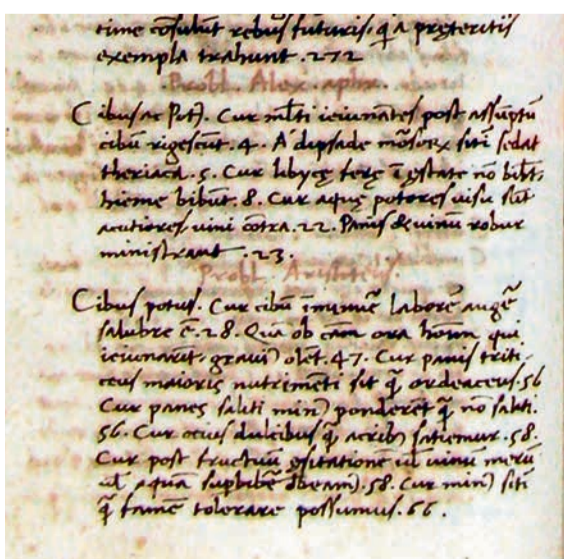 time cōsulūt rebus futuris, q̄ a pręteritis
exempla trahunt. 272
Probl. Alex. aphr.
Cibus ac Pot). Cur ml̄ti ieiunātes post assūptū
cibū rigescūt. 4. A dipsade mōsorex sitī sedat
theriaca. 5. Cur libycę ferę ī ęstate nō bibūt,
hieme bibūt. 8. Cur aquę potores uisu sūt
acutiores uini cōtra. 22. Panis & uinū robur
ministrant. 23.
Probl. Aristotelis.
Cibus potus. Cur cibū īminuē laborē augē
salubre ē. 28. Quā ob cām ora hoīum qui
ieiunarīt, graui) olēt. 47. Cur panis triti-
ceus maioris nutrimēti sit q̄ ordeaceus. 56
Cur panes saliti min) ponderēt q̄ nō saliti.
56. Cur ocius dulcibus q̄ acrib) satiemur. 58.
Cur post fructuū esitationē uł uinū merū
uł aquā suprbibē debeam). 58. Cur min) sitī
q̄ famē tolerare possumus. 66.